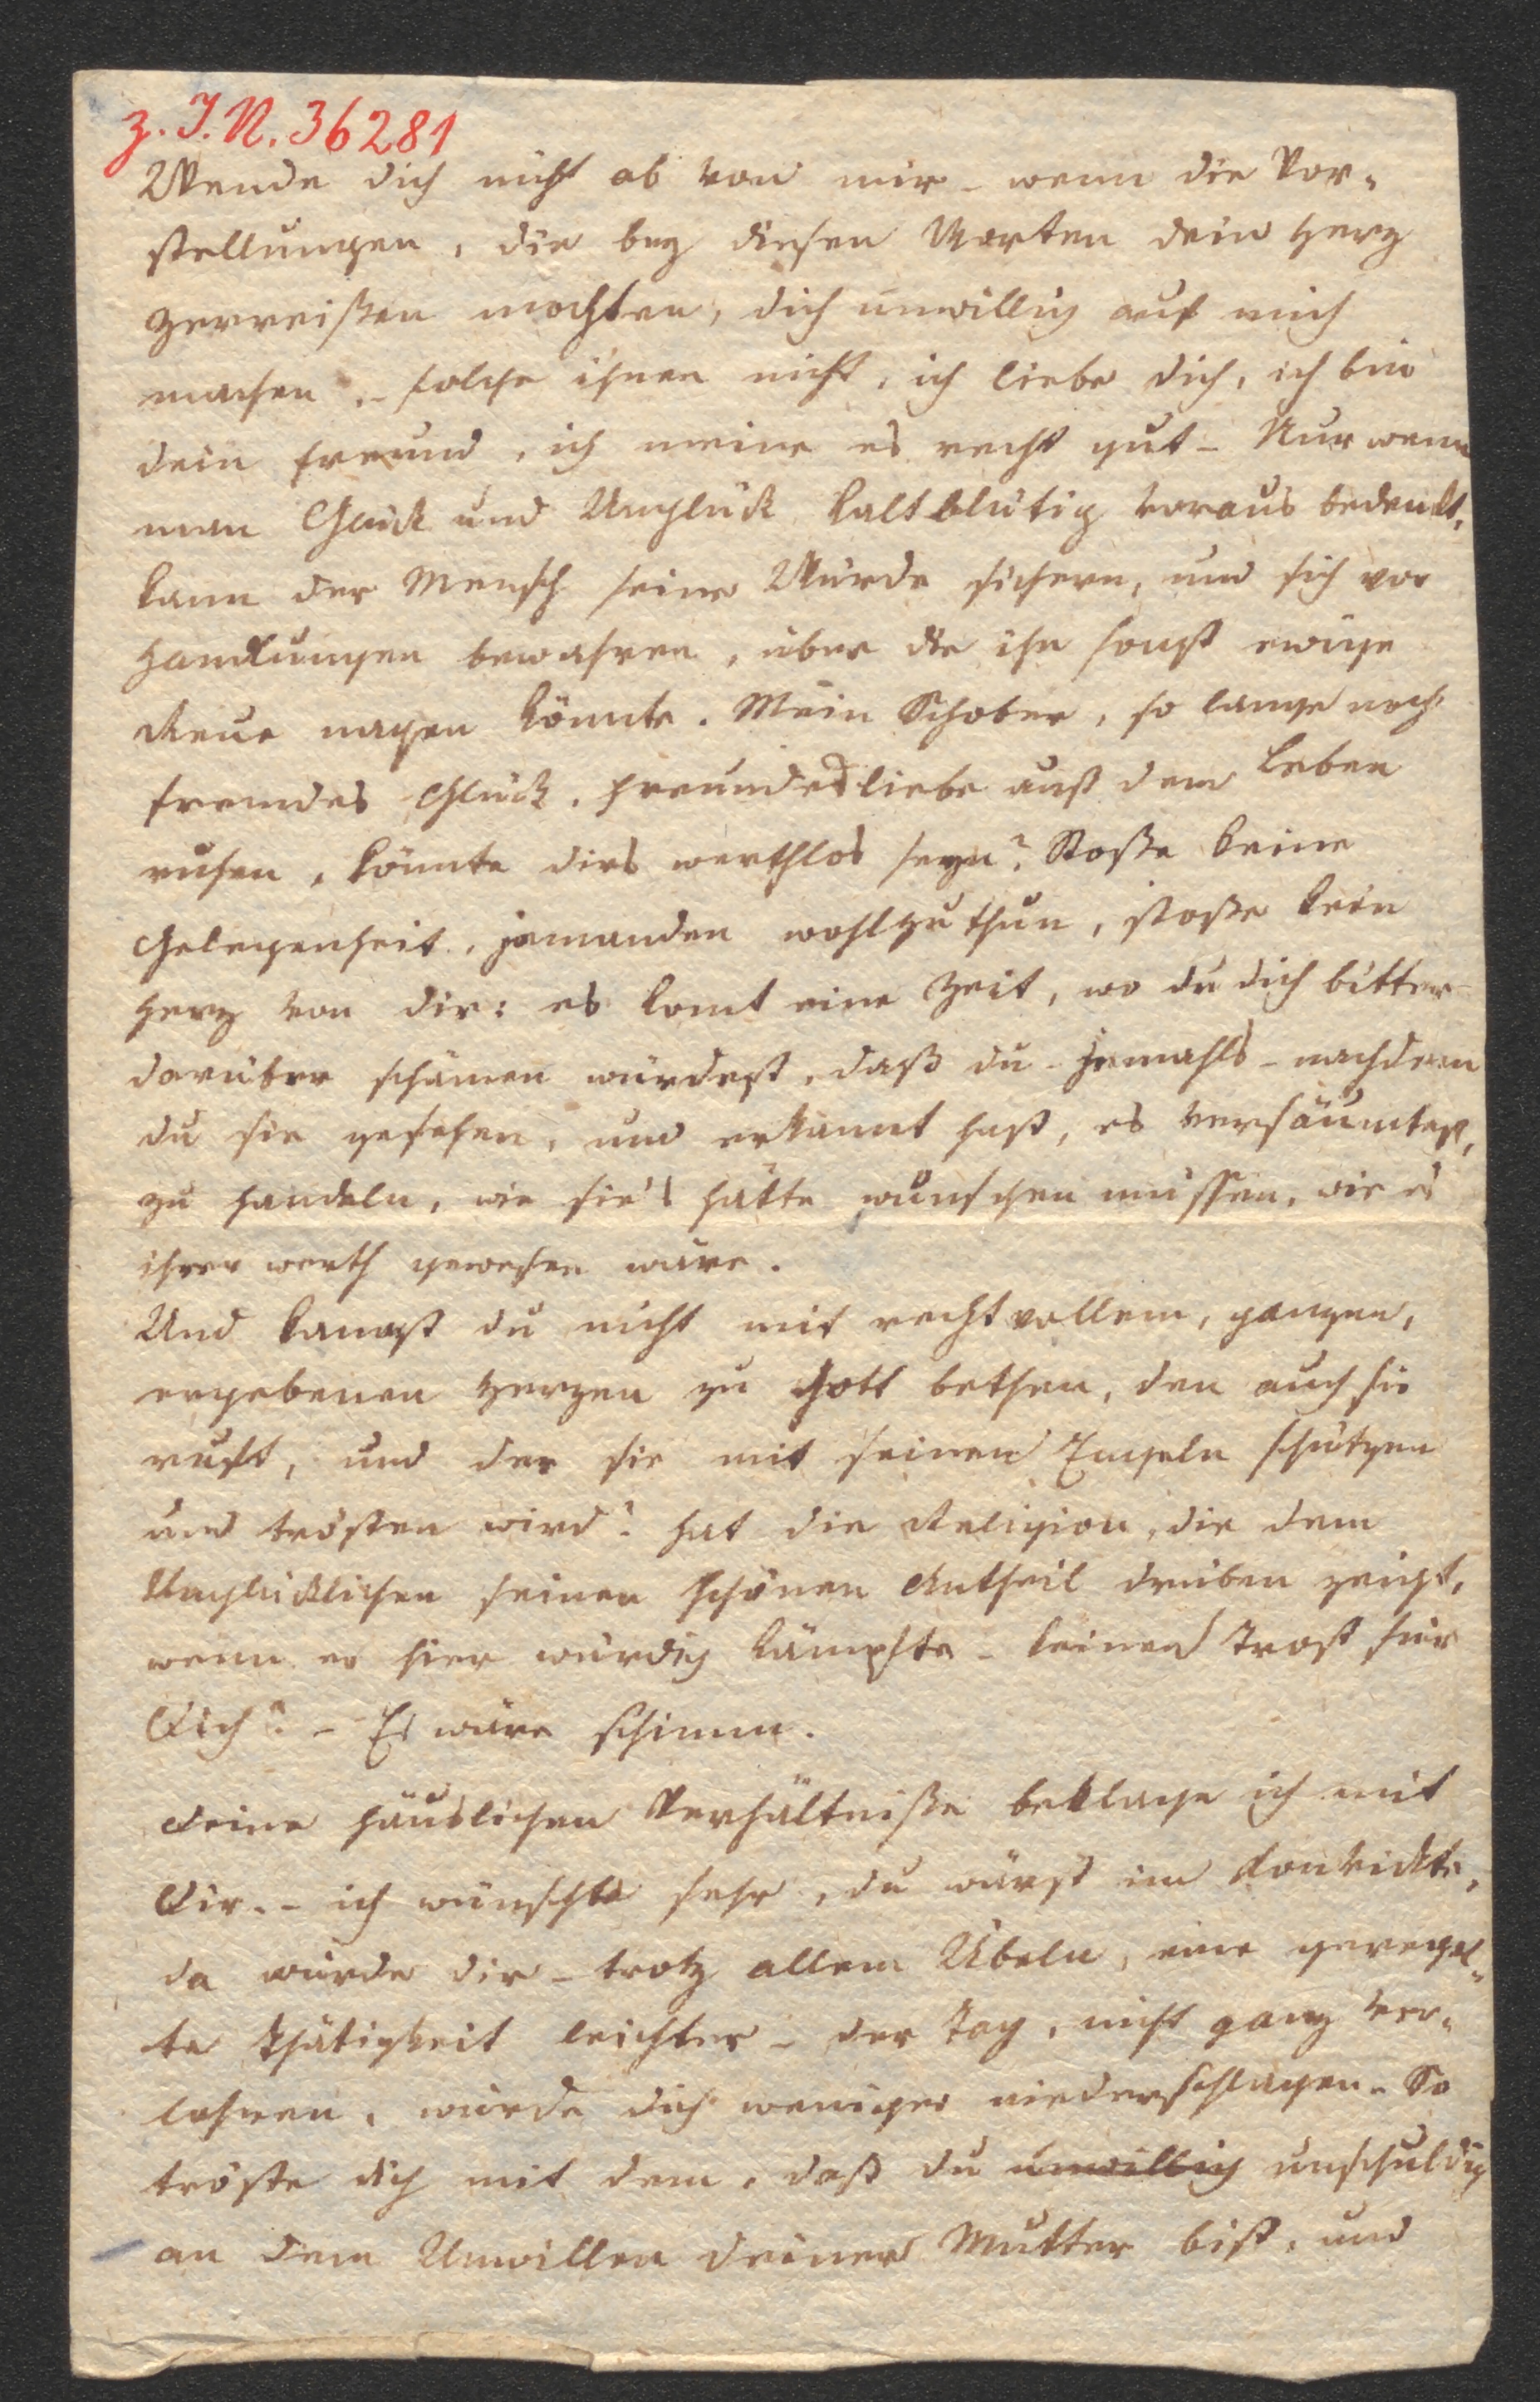 z. I. N. 36281
Wende dich nicht ab von mir – wenn die Vor-
stellungen, die bey diesen Worten dein Herz
zerreißen mochten, dich unwillig auf mich
machen. – folge ihnen nicht, ich liebe dich, ich bin
dein Freund, ich meine es recht gut – Nur wenn
man Glück und Unglück kaltblütig voraus bedenkt,
kann der Mensch seine Würde sichern, und sich vor
Handlungen bewahren, über die ihn sonst ewige
Reue nagen könnte. Mein Schober, so lange noch
fremdes Glück, Freundesliebe aus dem Leben
rufen, könnte dirs werthlos seyn? Stoße keine
Gelegenheit, jemanden wohlzuthun, stoße kein
Herz von dir: es komt eine Zeit, wo du dich bitter
darüber schämen würdest, daß du – jemahls – nachdem
du sie gesehen, und erkannt hast, es versäumtest,
zu handeln, wie sie's hätte wünschen müssen, wie es
ihrer werth gewesen wäre.
Und kannst du nicht mit recht vollem, ganzen,
ergebenen Herzen zu Gott bethen, den auch sie
ruft, und der sie mit seinen Engeln schützen
und trösten wird? hat die Religion, die dem
Unglücklichen seinen schönen Antheil drüben zeigt,
wenn er hier würdig kämpfte – keinen Trost für
Dich? – Es wäre schlimm.
Deine häuslichen Verhältniße beklage ich mit
Dir. – ich wünschte sehr, du wärst im Konvickte,
da würde dir – trotz allem Übeln, eine geregel-
te Thätigkeit leichter – der Tag, nicht ganz ver-
lohren, würde dich weniger niederschlagen. So
tröste dich mit dem, daß du unwillig unschuldig
an dem Unwillen deiner Mutter bist, und